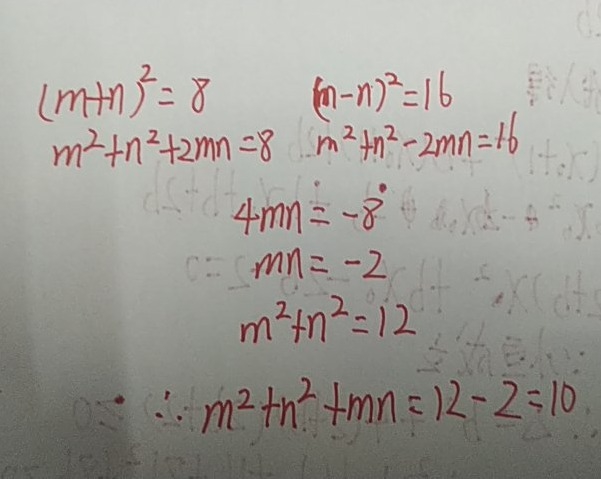 (m+n)²=8 (m-n)²=16
m²+n²+2mn=8 m²+n²-2mn=16
4mn=-8
mn=-2
m²+n²=12
∴ m²+n²+mn=12-2=10